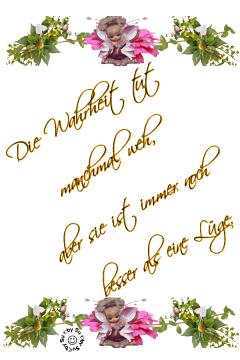 Die Wahrheit tut
manchmal weh,
aber sie ist immer noch
besser als eine Lüge,